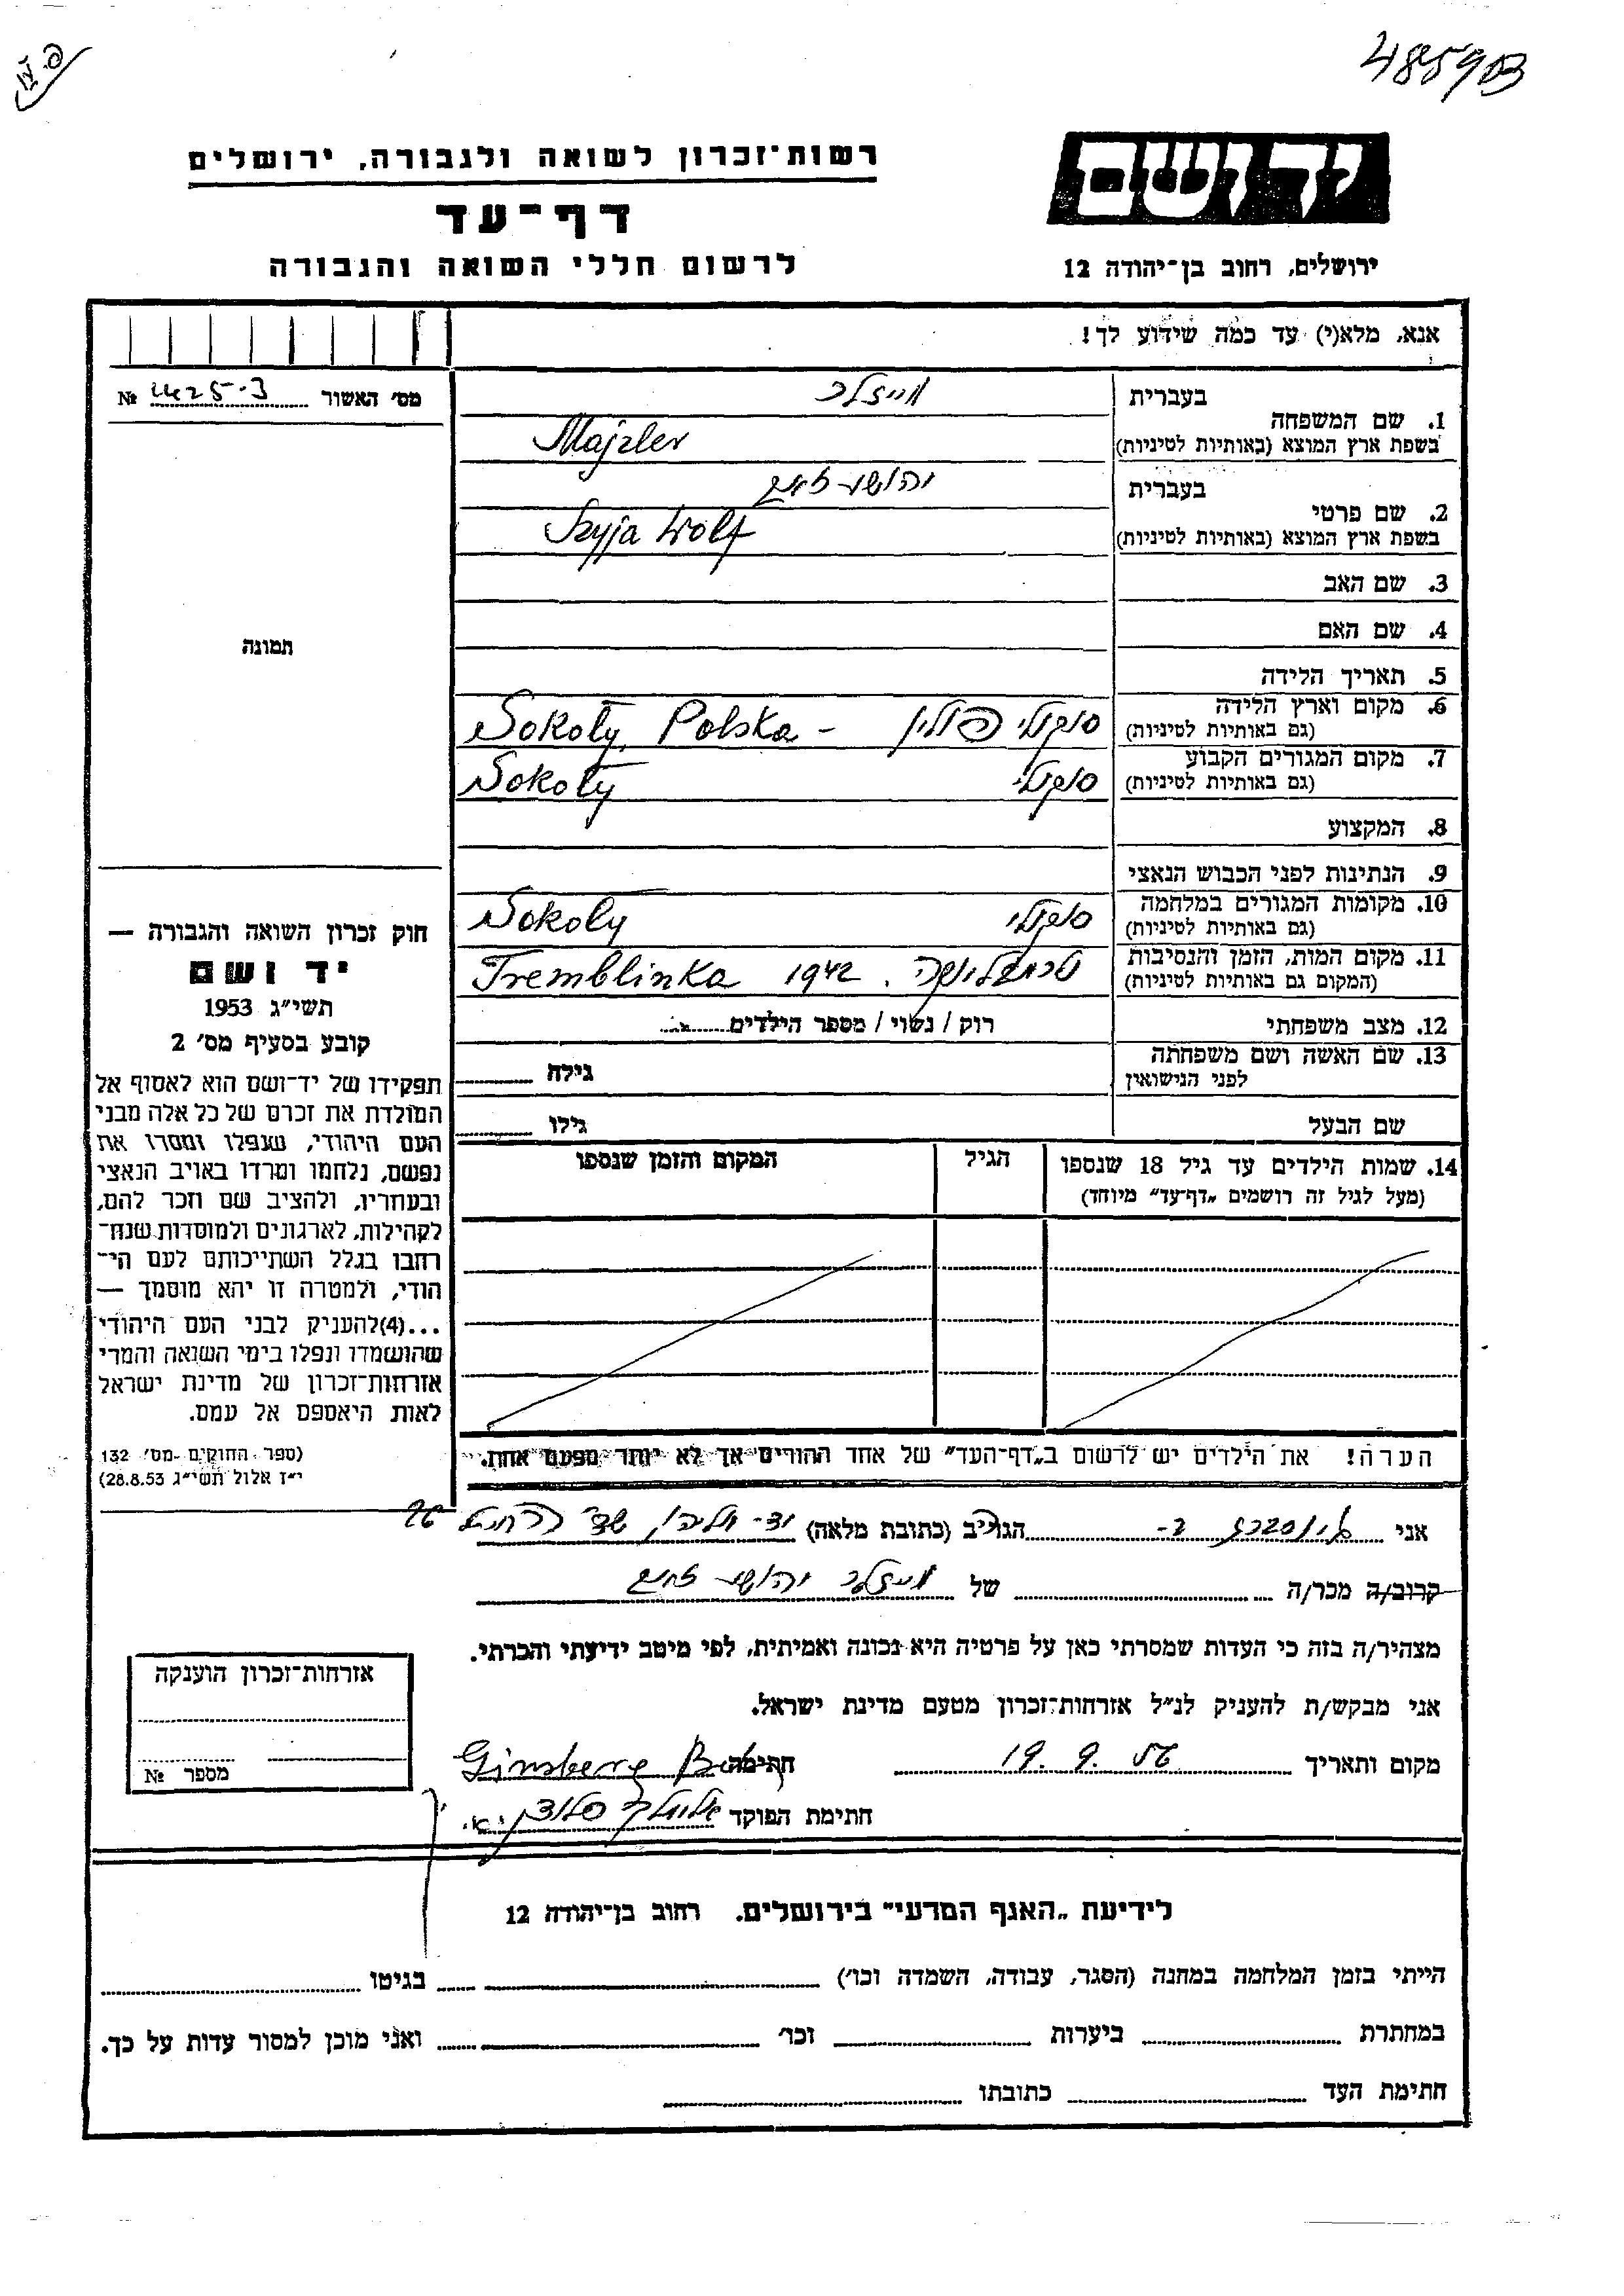 485903
רשות־זכרון לשואה ולגבורה, ירושלים
דף־עד
לרשום חללי השואה והגבורה
יד ושם
ירושלים, רחוב בן־יהודה 12
אנא, מלא(י) עד כמה שידוע לך!
מס׳ האשור № 
תמונה
חוק זכרון השואה והגבורה —
יד ושם
תשי״ג 1953
קובע בסעיף מס׳ 2
תפקידו של יד־ושם הוא לאסוף אל
המולדת את זכרם של כל אלה מבני
העם היהודי, שנפלו ומסרו את
נפשם, נלחמו ומרדו באויב הנאצי
ובעוזריו, ולהציב שם וזכר להם,
לקהילות, לארגונים ולמוסדות שנח־
רבו בגלל השתייכותם לעם הי־
הודי, ולמטרה זו יהא מוסמך —
...(4)להעניק לבני העם היהודי
שהושמדו ונפלו בימי השואה והמרי
אזרחות־זכרון של מדינת ישראל
לאות היאספם אל עמם.
(ספר החוקים מס׳ 132
י״ז אלול תשי״ג 28.8.53)
בעברית מייזלר
1. שם המשפחה
בשפת ארץ המוצא (באותיות לטיניות) Majzler
בעברית יהושע זאב
2. שם פרטי
בשפת ארץ המוצא (באותיות לטיניות) Szyja Wolf
3. שם האב
4. שם האם
5. תאריך הלידה
6. מקום וארץ הלידה סוקולי פולין - Sokoły, Polska
(גם באותיות לטיניות)
7. מקום המגורים הקבוע סוקולי Sokoły
(גם באותיות לטיניות)
8. המקצוע
9. הנתינות לפני הכבוש הנאצי
10. מקומות המגורים במלחמה סוקולי Sokoły
(גם באותיות לטיניות)
11. מקום המות, הזמן והנסיבות טרמבלינקה. 1942 Tremblinka
(המקום גם באותיות לטיניות)
12. מצב משפחתי רוק / נשוי / מספר הילדים
13. שם האשה ושם משפחתה גילה
לפני הנישואין
שם הבעל גילו
14. שמות הילדים עד גיל 18 שנספו הגיל המקום והזמן שנספו
(מעל לגיל זה רושמים „דף־עד״ מיוחד)
הערה! את הילדים יש לרשום ב„דף־העד״ של אחד ההורים אך לא יותר מפעם אחת.
אני גינזברג ב- הגר/ב (כתובת מלאה) יד-אליהו
קרוב/ה מכר/ה של מייזלר יהושע זאב
מצהיר/ה בזה כי העדות שמסרתי כאן על פרטיה היא נכונה ואמיתית, לפי מיטב ידיעתי והכרתי.
אני מבקש/ת להעניק לנ״ל אזרחות־זכרון מטעם מדינת ישראל.
מקום ותאריך 19. 9. 56 חתימה Ginsberg
חתימת הפוקד
אזרחות־זכרון הוענקה
מספר №
לידיעת „האגף המדעי״ בירושלים. רחוב בן־יהודה 12
הייתי בזמן המלחמה במחנה (הסגר, עבודה, השמדה וכו׳) בגיטו
במחתרת ביערות וכו׳ ואני מוכן למסור עדות על כך.
חתימת העד כתובתו